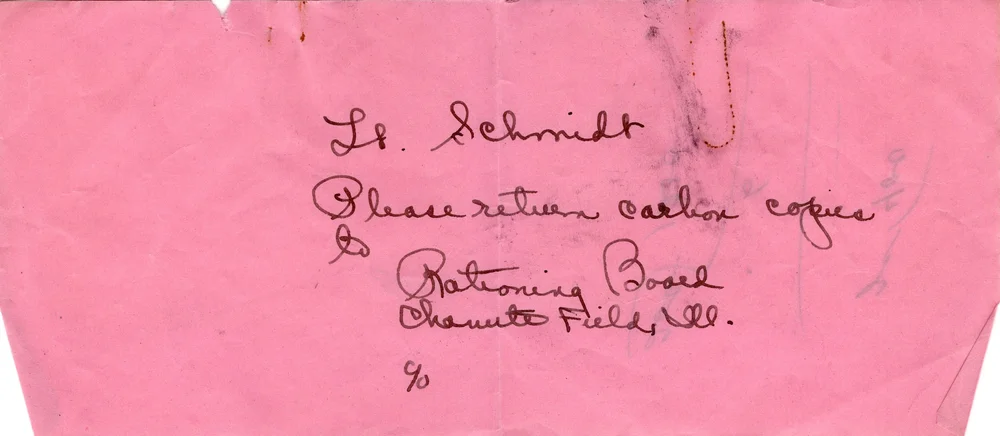 Lt. Schmidt
Please return carbon copies
to
Rationing Board
Chanute Field, Ill.
c/o